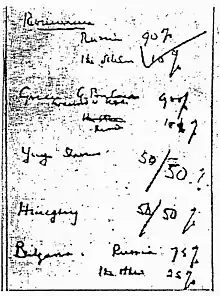 Roumania
Russia 90%
The others 10%
Greece G. Britain 90%
10%
Yugoslavia 50/50%
Hungary 50/50%
Bulgaria Russia 75%
the others 25%